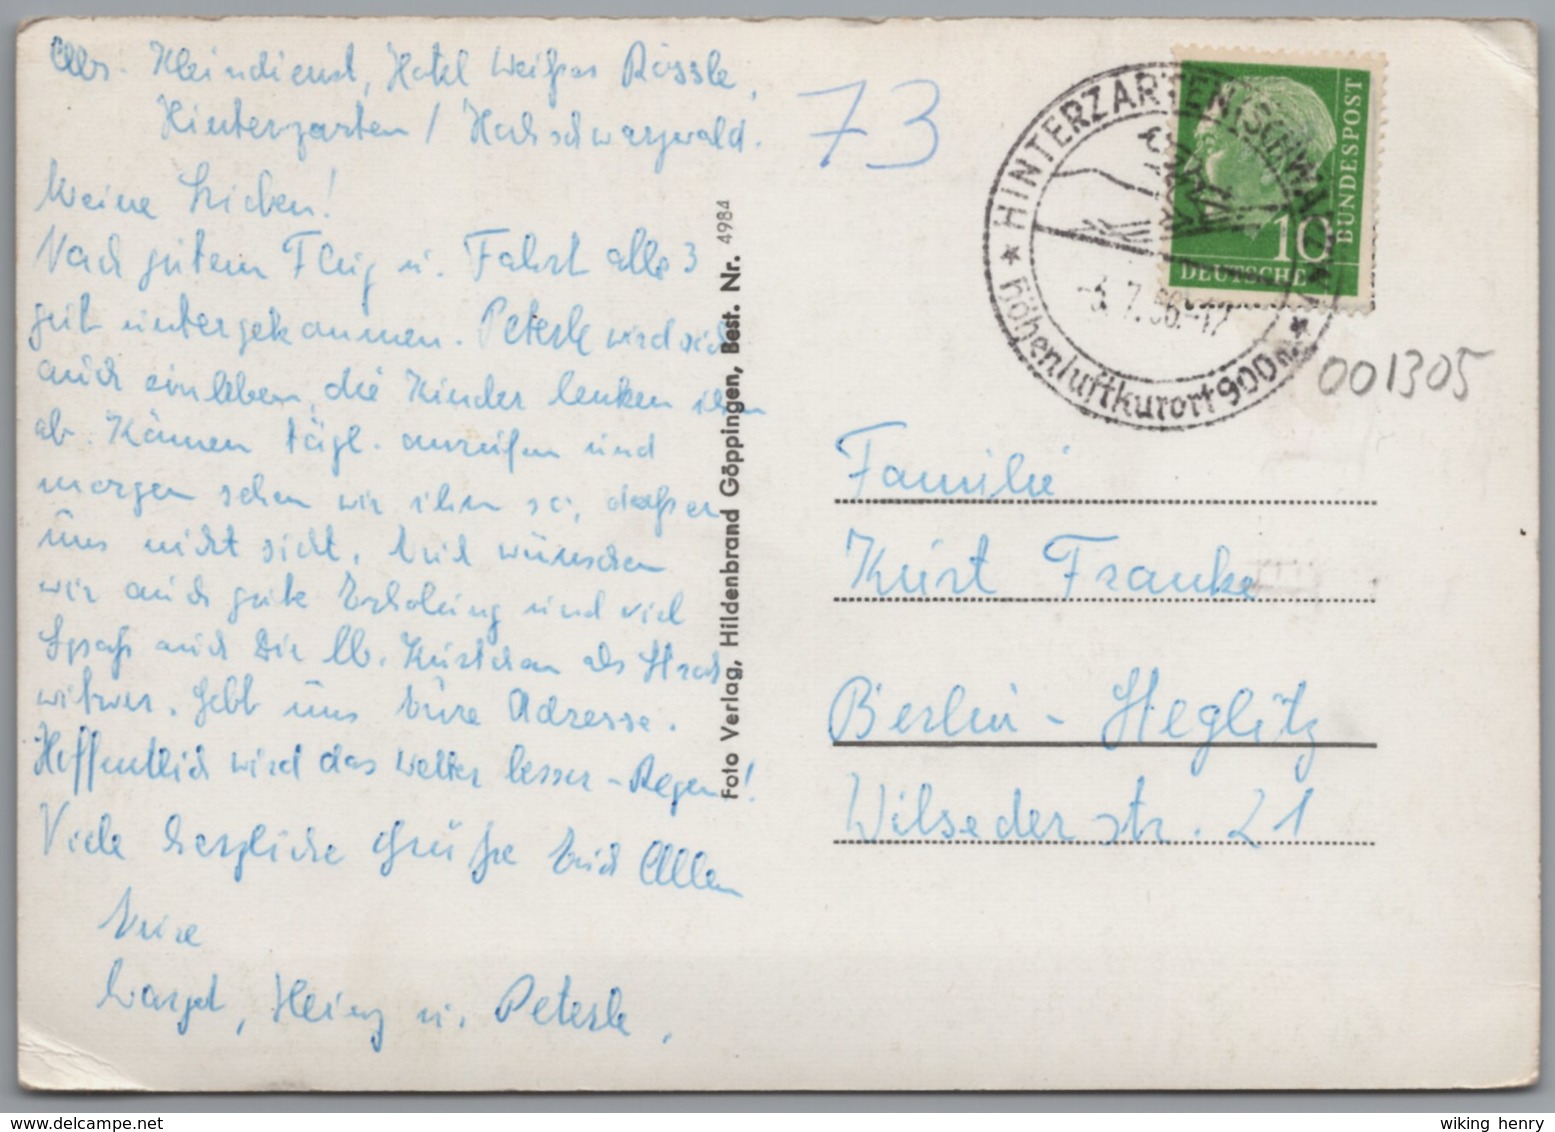 Abs. Kleindienst, Hotel Weißes Rössle,
Hinterzarten / Hochschwarzwald.
Meine Lieben!
Nach gutem Flug u. Fahrt alle 3
gut untergekommen. Peterle wird sich
auch einleben, die Kinder lenken ihn
ab. Können tägl. anrufen und
morgen sehen wir ihn so, daß er
uns nicht sieht. Euch wünschen
wir auch gute Erholung und viel
Spaß auch Dir lb. Kurtchen als Stroh
witwer. Gebt uns Eure Adresse.
Hoffentlich wird das Wetter besser - Regen!
Viele herzliche Grüße Euch Allen
Eure
Heinz u. Peterle.
73
Foto Verlag, Hildenbrand Göppingen, Best. Nr. 4984
HINTERZARTEN (SCHWARZW.)
Höhenluftkurort 900 m
7.56.-17
10
DEUTSCHE
BUNDESPOST
001305
Familie
Kurt Franke
Berlin - Steglitz
Wilseder str. 21
wiking henry